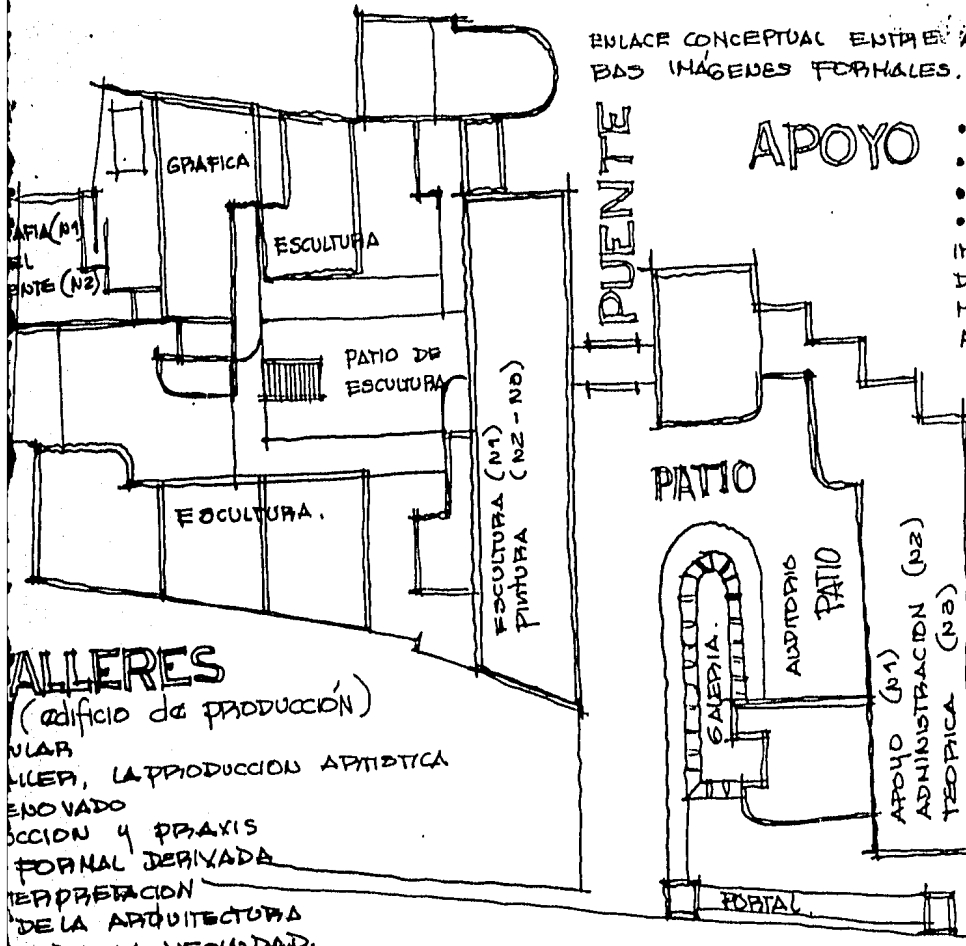 ENLACE CONCEPTUAL ENTRE
BAS IMÁGENES FORMALES.
PUENTE
APOYO
GRAFICA
ESCULTURA
AFIA (N1)
EL
ENTE (N2)
PATIO DE
ESCULTURA
ESCULTURA (N1)
PINTURA (N2-N3)
ESCULTURA.
PATIO
AUDITORIO
PATIO
GALERIA.
APOYO (N1)
ADMINISTRACION (N2)
TEORICA (N3)
PORTAL
ALLERES
(edificio de PRODUCCIÓN)
ULAR
ALLER, LA PRODUCCION ARTISTICA
ENOVADO
CCION Y PRAXIS
FORMAL DERIVADA
TERPRETACION
DE LA ARQUITECTURA